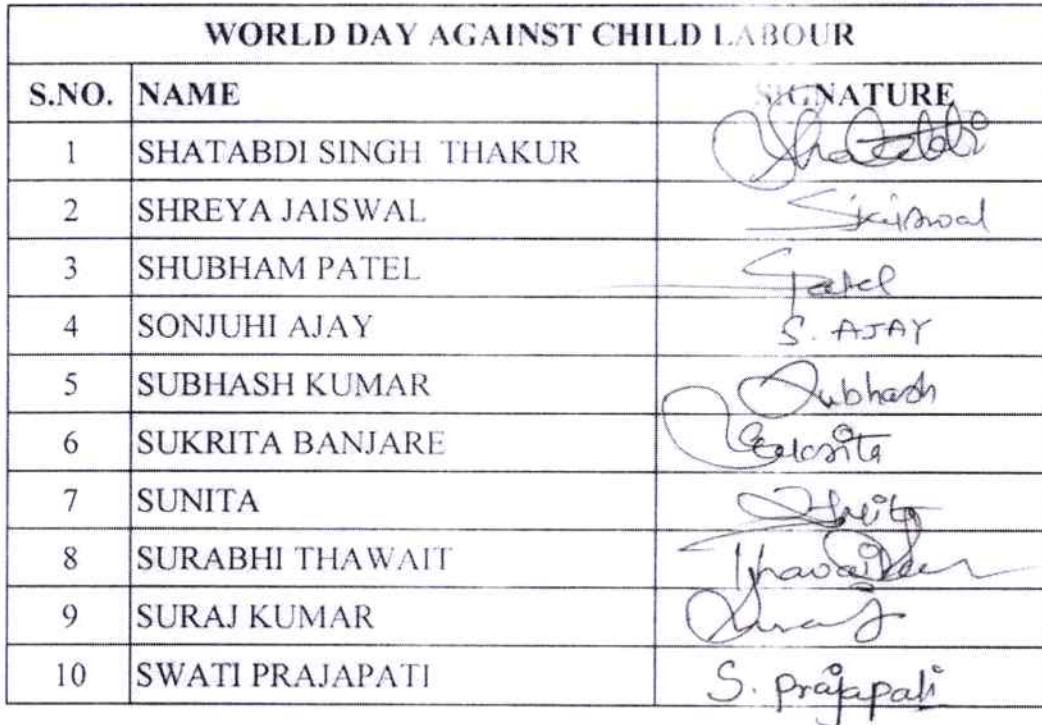 WORLD DAY AGAINST CHILD LABOUR
S.NO. NAME SIGNATURE
1 SHATABDI SINGH THAKUR Shatabdi
2 SHREYA JAISWAL SJaiswal
3 SHUBHAM PATEL SPatel
4 SONJUHI AJAY S. AJAY
5 SUBHASH KUMAR Subhash
6 SUKRITA BANJARE Sukrita
7 SUNITA Sunita
8 SURABHI THAWAIT
9 SURAJ KUMAR Suraj
10 SWATI PRAJAPATI S. Prajapati